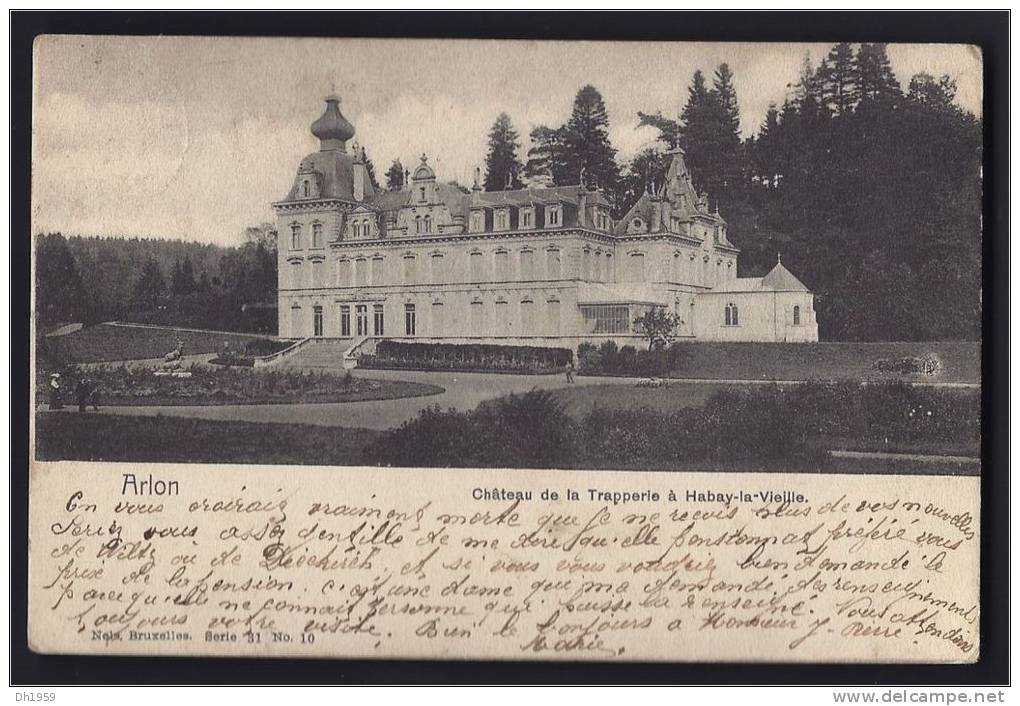 Arlon
Château de la Trapperie à Habay-la-Vieille.
On vous croirait vraiment morte que je ne reçois plus de vos nouvelles
Seriez vous assez gentille de me dire qu'elle pensionnat préféré vous
de Wiltz où de Diechirch, et si vous vous voudriez bien demandé le
prix de la pension. c'est une dame que m'a demandé des renseignements
parce qu'elle ne connait personne qui puisse la renseigné. Nous attendons
toujours votre visite. Bien le bonjours a Monsieur J. Pierre.
Marie.
Nels, Bruxelles. Serie 31 No. 10
Dh1959
www.delcampe.net